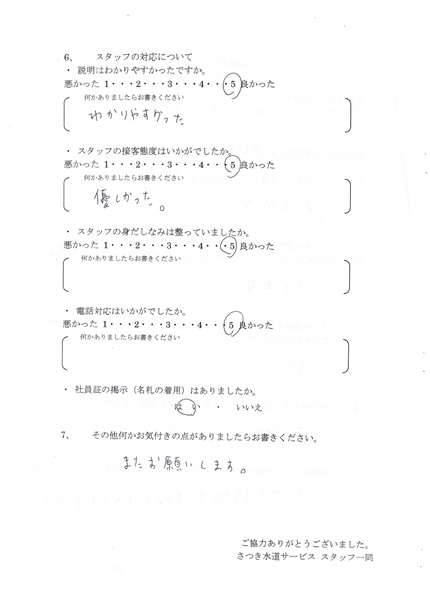 6、 スタッフの対応について
・ 説明はわかりやすかったですか。
悪かった 1・・・2・・・3・・・4・・・5 良かった
何かありましたらお書きください
わかりやすかった
・ スタッフの接客態度はいかがでしたか。
悪かった 1・・・2・・・3・・・4・・・5 良かった
何かありましたらお書きください
優しかった。
・ スタッフの身だしなみは整っていましたか。
悪かった 1・・・2・・・3・・・4・・・5 良かった
何かありましたらお書きください
・ 電話対応はいかがでしたか。
悪かった 1・・・2・・・3・・・4・・・5 良かった
何かありましたらお書きください
・ 社員証の掲示（名札の着用）はありましたか。
はい ・ いいえ
7、 その他何かお気付きの点がありましたらお書きください。
またお願いします。
ご協力ありがとうございました。
さつき水道サービス スタッフ一同